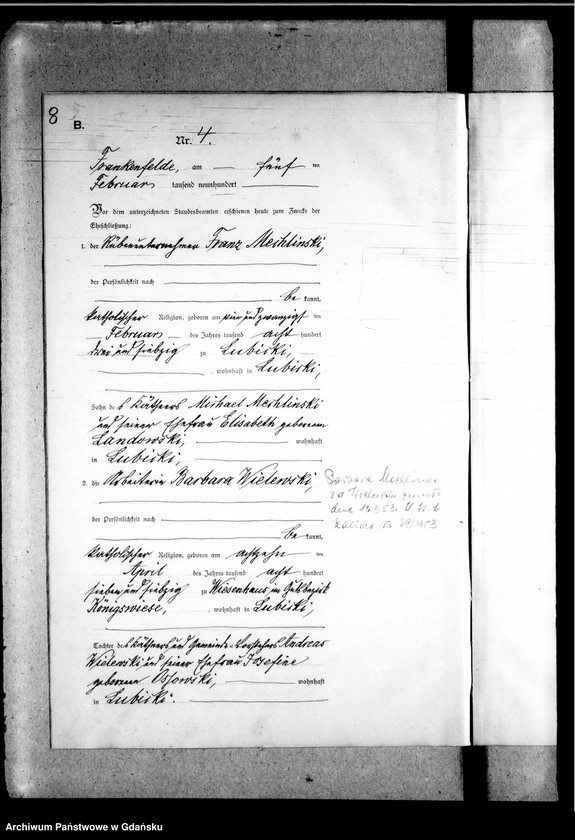 8
B.
Nr. 4.
Frankenfelde, am — fünf ten
Februar tausend neunhundert
Vor dem unterzeichneten Standesbeamten erschienen heute zum Zwecke der
Eheschließung:
1. der Rübenunternehmer Franz Meshlinski,
der Persönlichkeit nach
be kannt,
katholischer Religion, geboren am vier und zwanzigst ten
Februar des Jahres tausend acht hundert
drei und siebzig zu Lubiski,
, wohnhaft in Lubiski,
Sohn des Käthners Michael Meshlinski
und seiner Ehefrau Elisabeth geborenen
Landowski, wohnhaft
in Lubiski,
2. die Arbeiterin Barbara Wielewski,
der Persönlichkeit nach
be kannt,
katholischer Religion, geboren am achtzehn ten
April des Jahres tausend acht hundert
sieben und siebzig zu Wiesenhaus im Gutsbezirk
Königswiese, , wohnhaft in Lubiski,
Tochter des Käthners und Gemeinde-Vorstehers Andreas
Wielewski und seiner Ehefrau Josefine
geborenen Ossowski, wohnhaft
in Lubiski.
Barbara
Archiwum Państwowe w Gdańsku